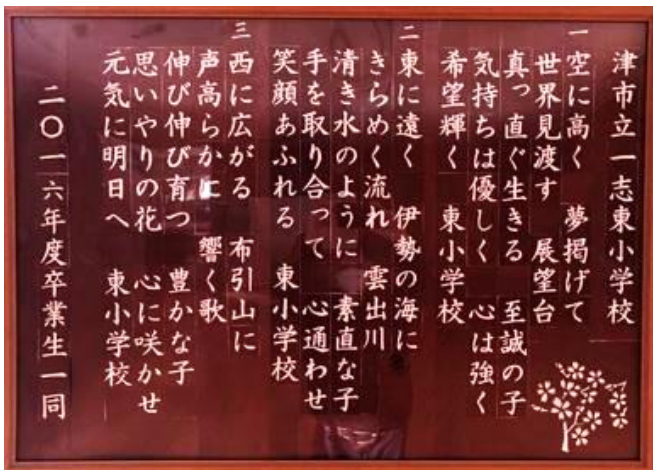 津市立一志東小学校
一 空に高く 夢掲げて
世界見渡す 展望台
真っ直ぐ生きる 至誠の子
気持ちは優しく 心は強く
希望輝く 東小学校
二 東に遠く 伊勢の海に
きらめく流れ 雲出川
清き水のように 素直な子
手を取り合って 心通わせ
笑顔あふれる 東小学校
三 西に広がる 布引山に
声高らかに 響く歌
伸び伸び育つ 豊かな子
思いやりの花 心に咲かせ
元気に明日へ 東小学校
二〇一六年度卒業生一同